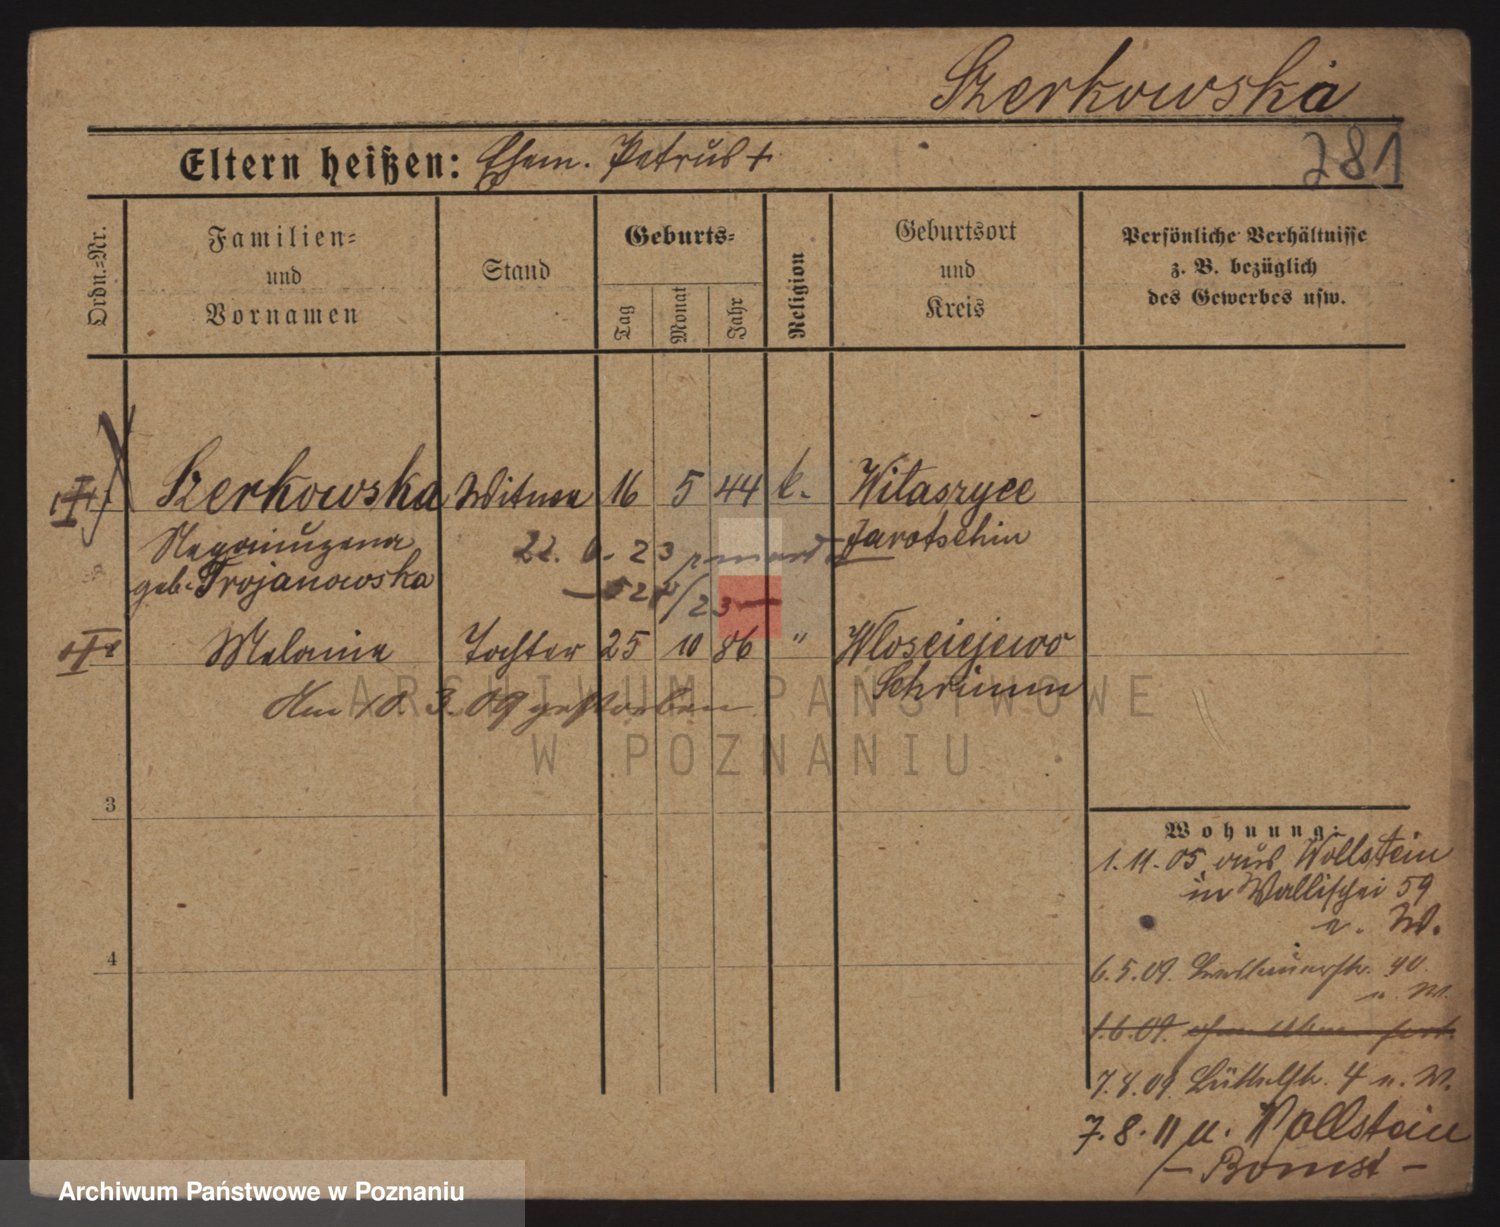 Szerkowska
281
Eltern heißen: Ehem. Petrus +
Ordn.-Nr.
Familien-
und
Vornamen
Stand
Geburts-
Tag
Monat
Jahr
Religion
Geburtsort
und
Kreis
Persönliche Verhältnisse
z. B. bezüglich
des Gewerbes usw.
Szerkowska Witwe 16 5 44 k. Witaszyce
Jarotschin
22. 6. 23
geb. Trojanowska
Melanie Tochter 25 10 86 " Wlosciejewo
Schrimm
Am 10. 3. 09 gestorben
3
4
Wohnung:
1. 11. 05 aus Wollstein
in Wallischei 59
n. W.
6. 5. 09. 40
n. W.
1. 6. 09.
7. 8. 09. 4 n. W.
7. 8. 11 n. Wollstein
- Bomst -
ARCHIWUM PAŃSTWOWE
W POZNANIU
Archiwum Państwowe w Poznaniu